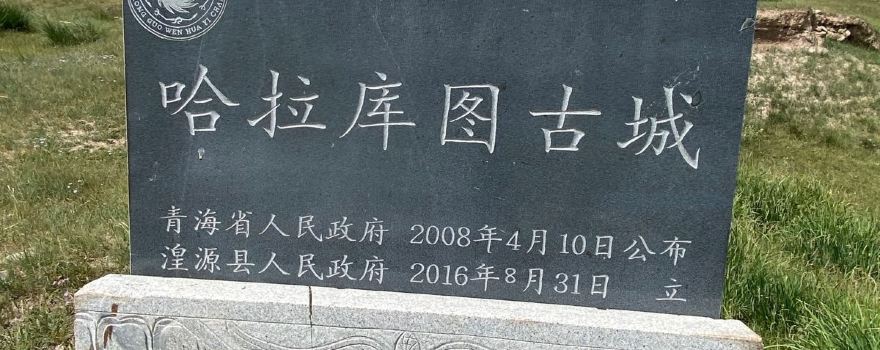 ONG GUO WEN HUA YI CHA
哈拉库图古城
青海省人民政府 2008年4月10日公布
湟源县人民政府 2016年8月31日 立